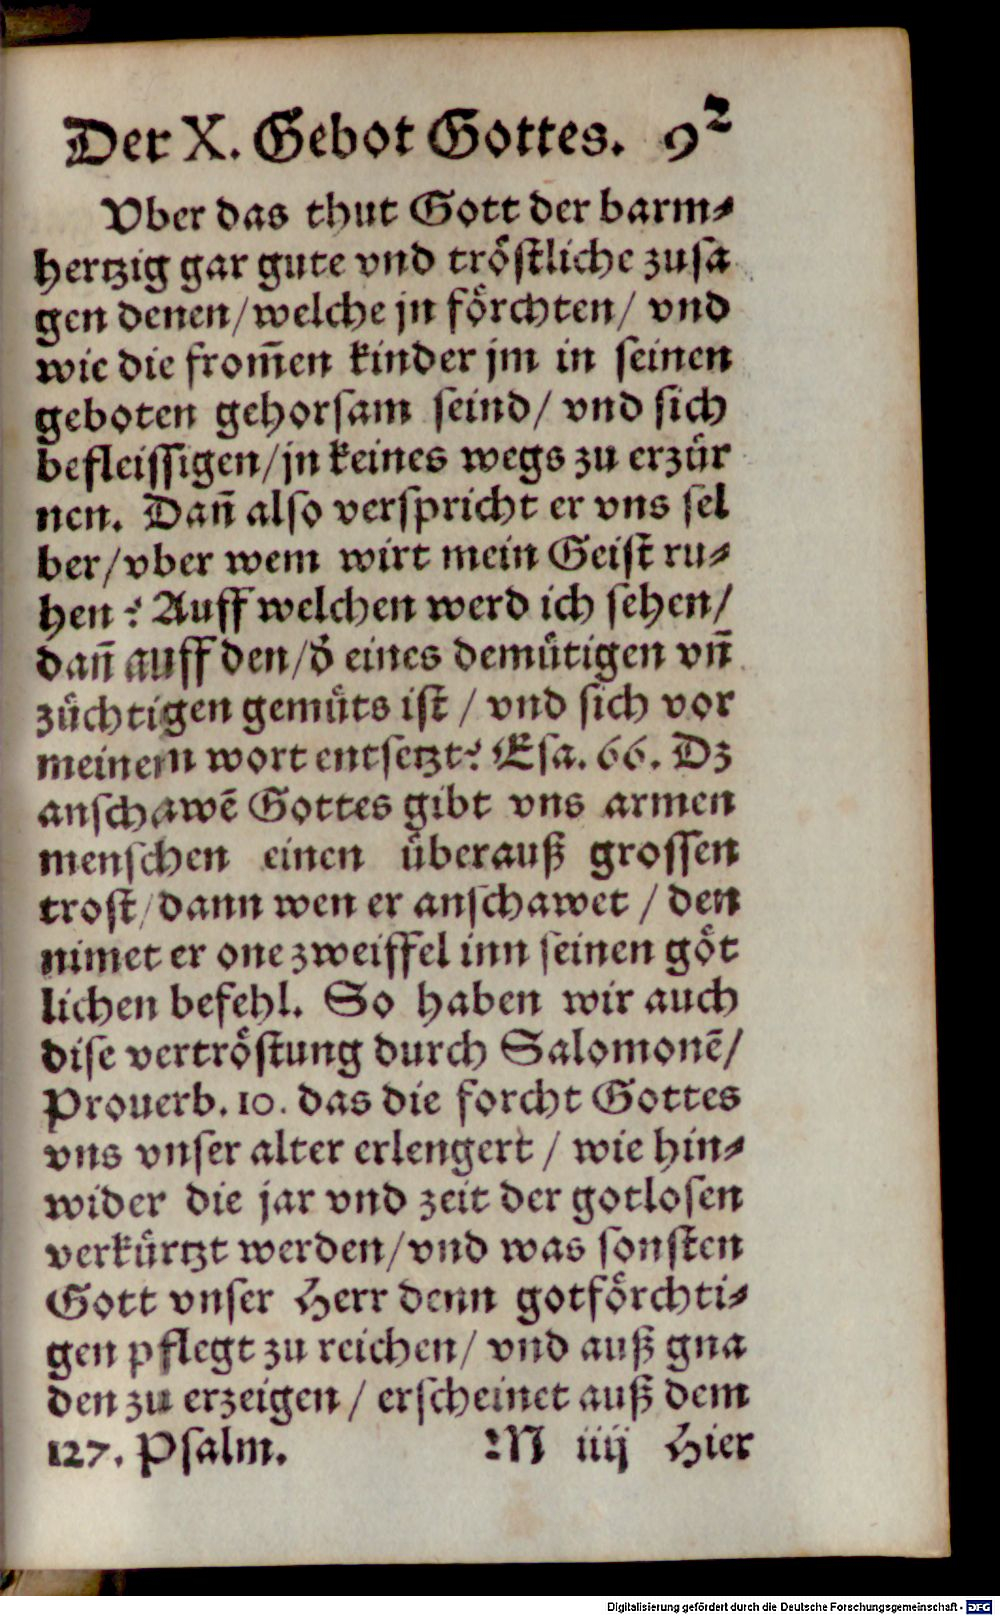 Der X. Gebot Gottes. 92
Vber das thut Gott der barm⸗
hertzig gar gute vnd tröstliche zusa
gen denen/ welche jn förchten/ vnd
wie die from̃en kinder jm in seinen
geboten gehorsam seind/ vnd sich
befleissigen/ jn keines wegs zu erzür
nen. Dañ also verspricht er vns sel
ber/ vber wem wirt mein Geist ru⸗
hen? Auff welchen werd ich sehen/
dañ auff den/ d̕ eines demütigen vñ
züchtigen gemüts ist / vnd sich vor
meinem wort entsetzt? Esa. 66. Dz
anschawẽ Gottes gibt vns armen
menschen einen überauß grossen
trost/ dann wen er anschawet / den
nimet er one zweiffel inn seinen göt
lichen befehl. So haben wir auch
dise vertröstung durch Salomonẽ/
Prouerb. 10. das die forcht Gottes
vns vnser alter erlengert / wie hin⸗
wider die jar vnd zeit der gotlosen
verkürtzt werden/ vnd was sonsten
Gott vnser Herr denn gotförchti⸗
gen pflegt zu reichen/ vnd auß gna
den zu erzeigen / erscheinet auß dem
127. Psalm. M iiij Hier
Digitalisierung gefördert durch die Deutsche Forschungsgemeinschaft - DFG